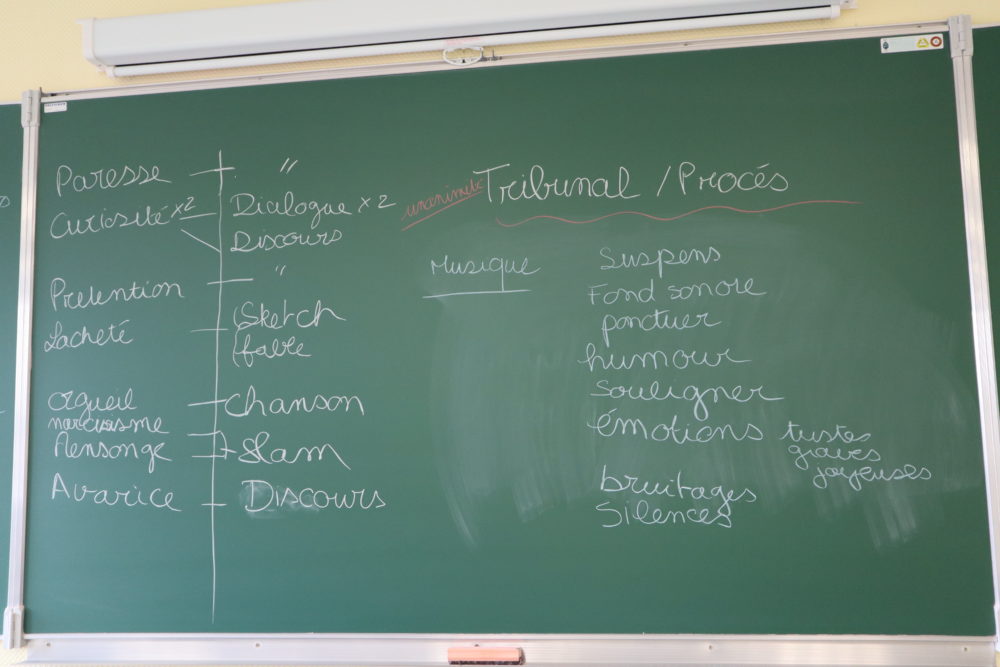 Paresse — "
Curiosité x2 — Dialogue x2
Discours
Pretention — "
Lacheté — (Sketch
(fable
orgueil — chanson
narcissisme
Mensonge — + slam
Avarice — Discours
unanimité Tribunal / Procés
Musique
Suspens
Fond sonore
ponctuer
humour
souligner
émotions tristes
graves
joyeuses
bruitages
Silences